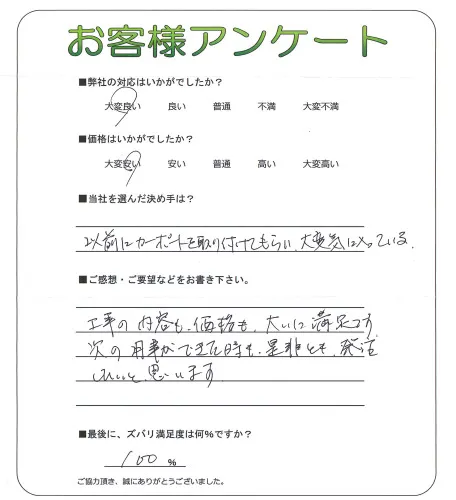 お客様アンケート
■弊社の対応はいかがでしたか？
大変良い 良い 普通 不満 大変不満
■価格はいかがでしたか？
大変安い 安い 普通 高い 大変高い
■当社を選んだ決め手は？
以前にカーポートを取り付けてもらい、大変気に入っている.
■ご感想・ご要望などをお書き下さい。
工事の内容も、価格も、大いに満足です
次の用事ができた時も、是非とも、発注
したいと思います
■最後に、ズバリ満足度は何％ですか？
100 %
ご協力頂き、誠にありがとうございました。